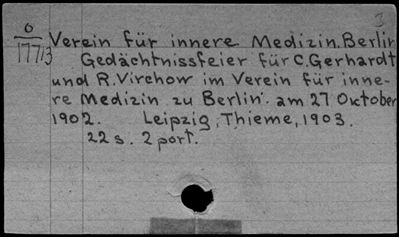 3
O
17713
Verein für innere Medizin. Berlin
Gedächtnissfeier für C. Gerhardt
und R. Virchow im Verein für inne-
re Medizin zu Berlin. am 27 Oktober
1902. Leipzig, Thieme, 1903.
22 s. 2 port.